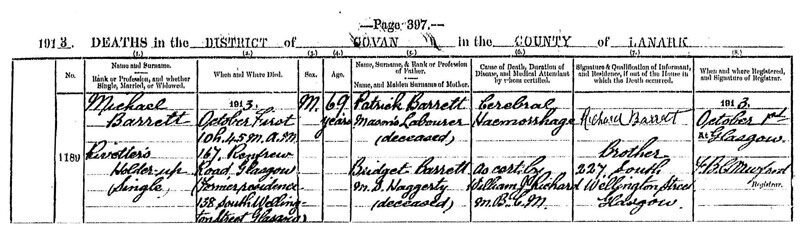 —Page 397.—
1913. DEATHS in the DISTRICT of GOVAN in the COUNTY of LANARK
(1.) (2.) (3.) (4.) (5.) (6.) (7.) (8.)
No. Name and Surname. Rank or Profession, and whether Single, Married, or Widowed.
When and Where Died.
Sex.
Age.
Name, Surname, & Rank or Profession of Father. Name, and Maiden Surname of Mother.
Cause of Death, Duration of Disease, and Medical Attendant by whom certified.
Signature & Qualification of Informant, and Residence, if out of the House in which the Death occurred.
When and where Registered, and Signature of Registrar.
1180
Michael
Barrett
Rivetter's
Holder-up
Single
1913.
October First
10h. 45m. A.M.
167, Renfrew
Road, Glasgow
Former residence
138 South Welling-
ton Street Glasgow
M.
69
years
Patrick Barrett
Mason's Labourer
(deceased)
Bridget Barrett
m.s. Haggerty
(deceased)
Cerebral
Haemorrhage
As cert. by
William
M.B.C.M.
Richard Barrett
Brother
227, South
Wellington Street
Glasgow
1913.
October 1st
At Glasgow.
Registrar.